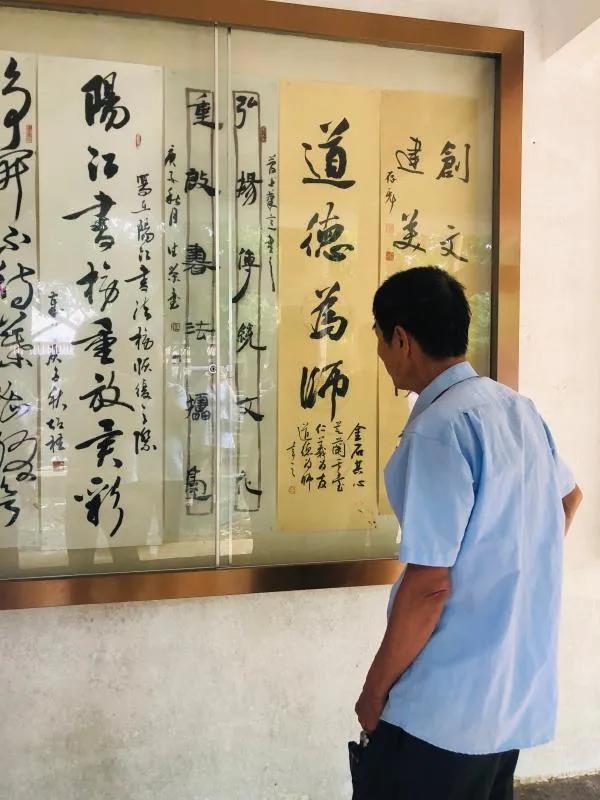 創文
建美
道德為師
金石其心
芝蘭其室
仁義為友
道德為師
弘揚傳統文化
重啟書法擂臺
庚子秋月
陽江書榜重放異彩
寫在陽江書法榜恢復之際
庚子秋
爭開不待葉